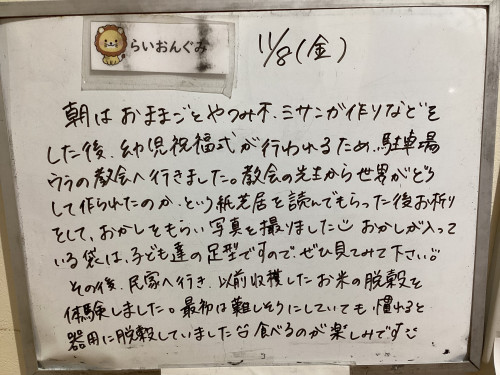 らいおんぐみ
11/8(金)
朝はおままごとやつみ木、ミサンガ作りなどを
した後、幼児祝福式が行われるため、駐車場
ウラの教会へ行きました。教会の先生から世界がどう
して作られたのか、という紙芝居を読んでもらった後お祈り
をして、おかしをもらい写真を撮りました。おかしが入って
いる袋は、子ども達の足型ですので、ぜひ見てみて下さい。
その後、民家へ行き、以前収穫したお米の脱穀を
体験しました。最初は難しそうにしていても慣れると
器用に脱穀していました 食べるのが楽しみです